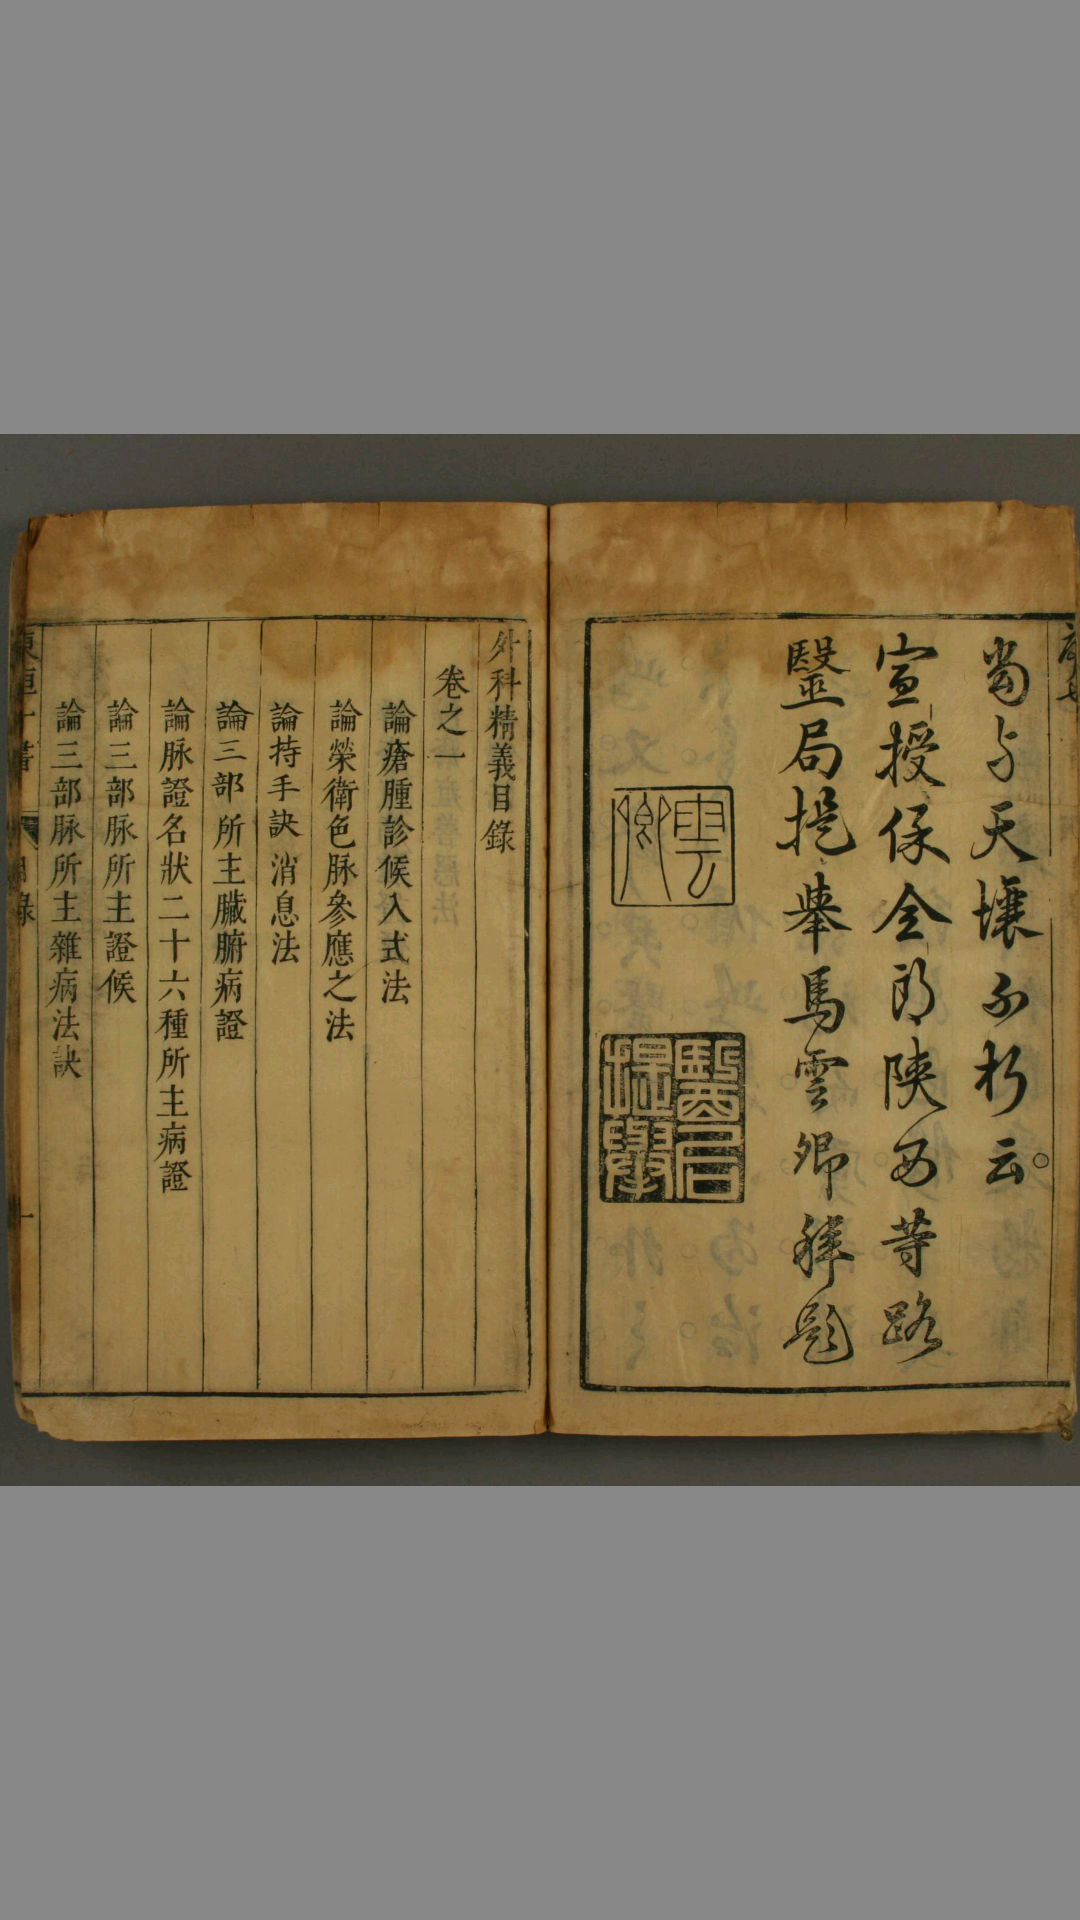 當与天壤不朽云
宣授保全郎陝西等路
醫局提舉馬雲卿拜題
雲卿
醫局提舉
外科精義目錄
卷之一
論瘡腫診候入式法
論榮衛色脉參應之法
論持手訣消息法
論三部所主臟腑病證
論脉證名狀二十六種所主病證
論三部脉所主證候
論三部脉所主雜病法訣
東垣十書 目錄 一